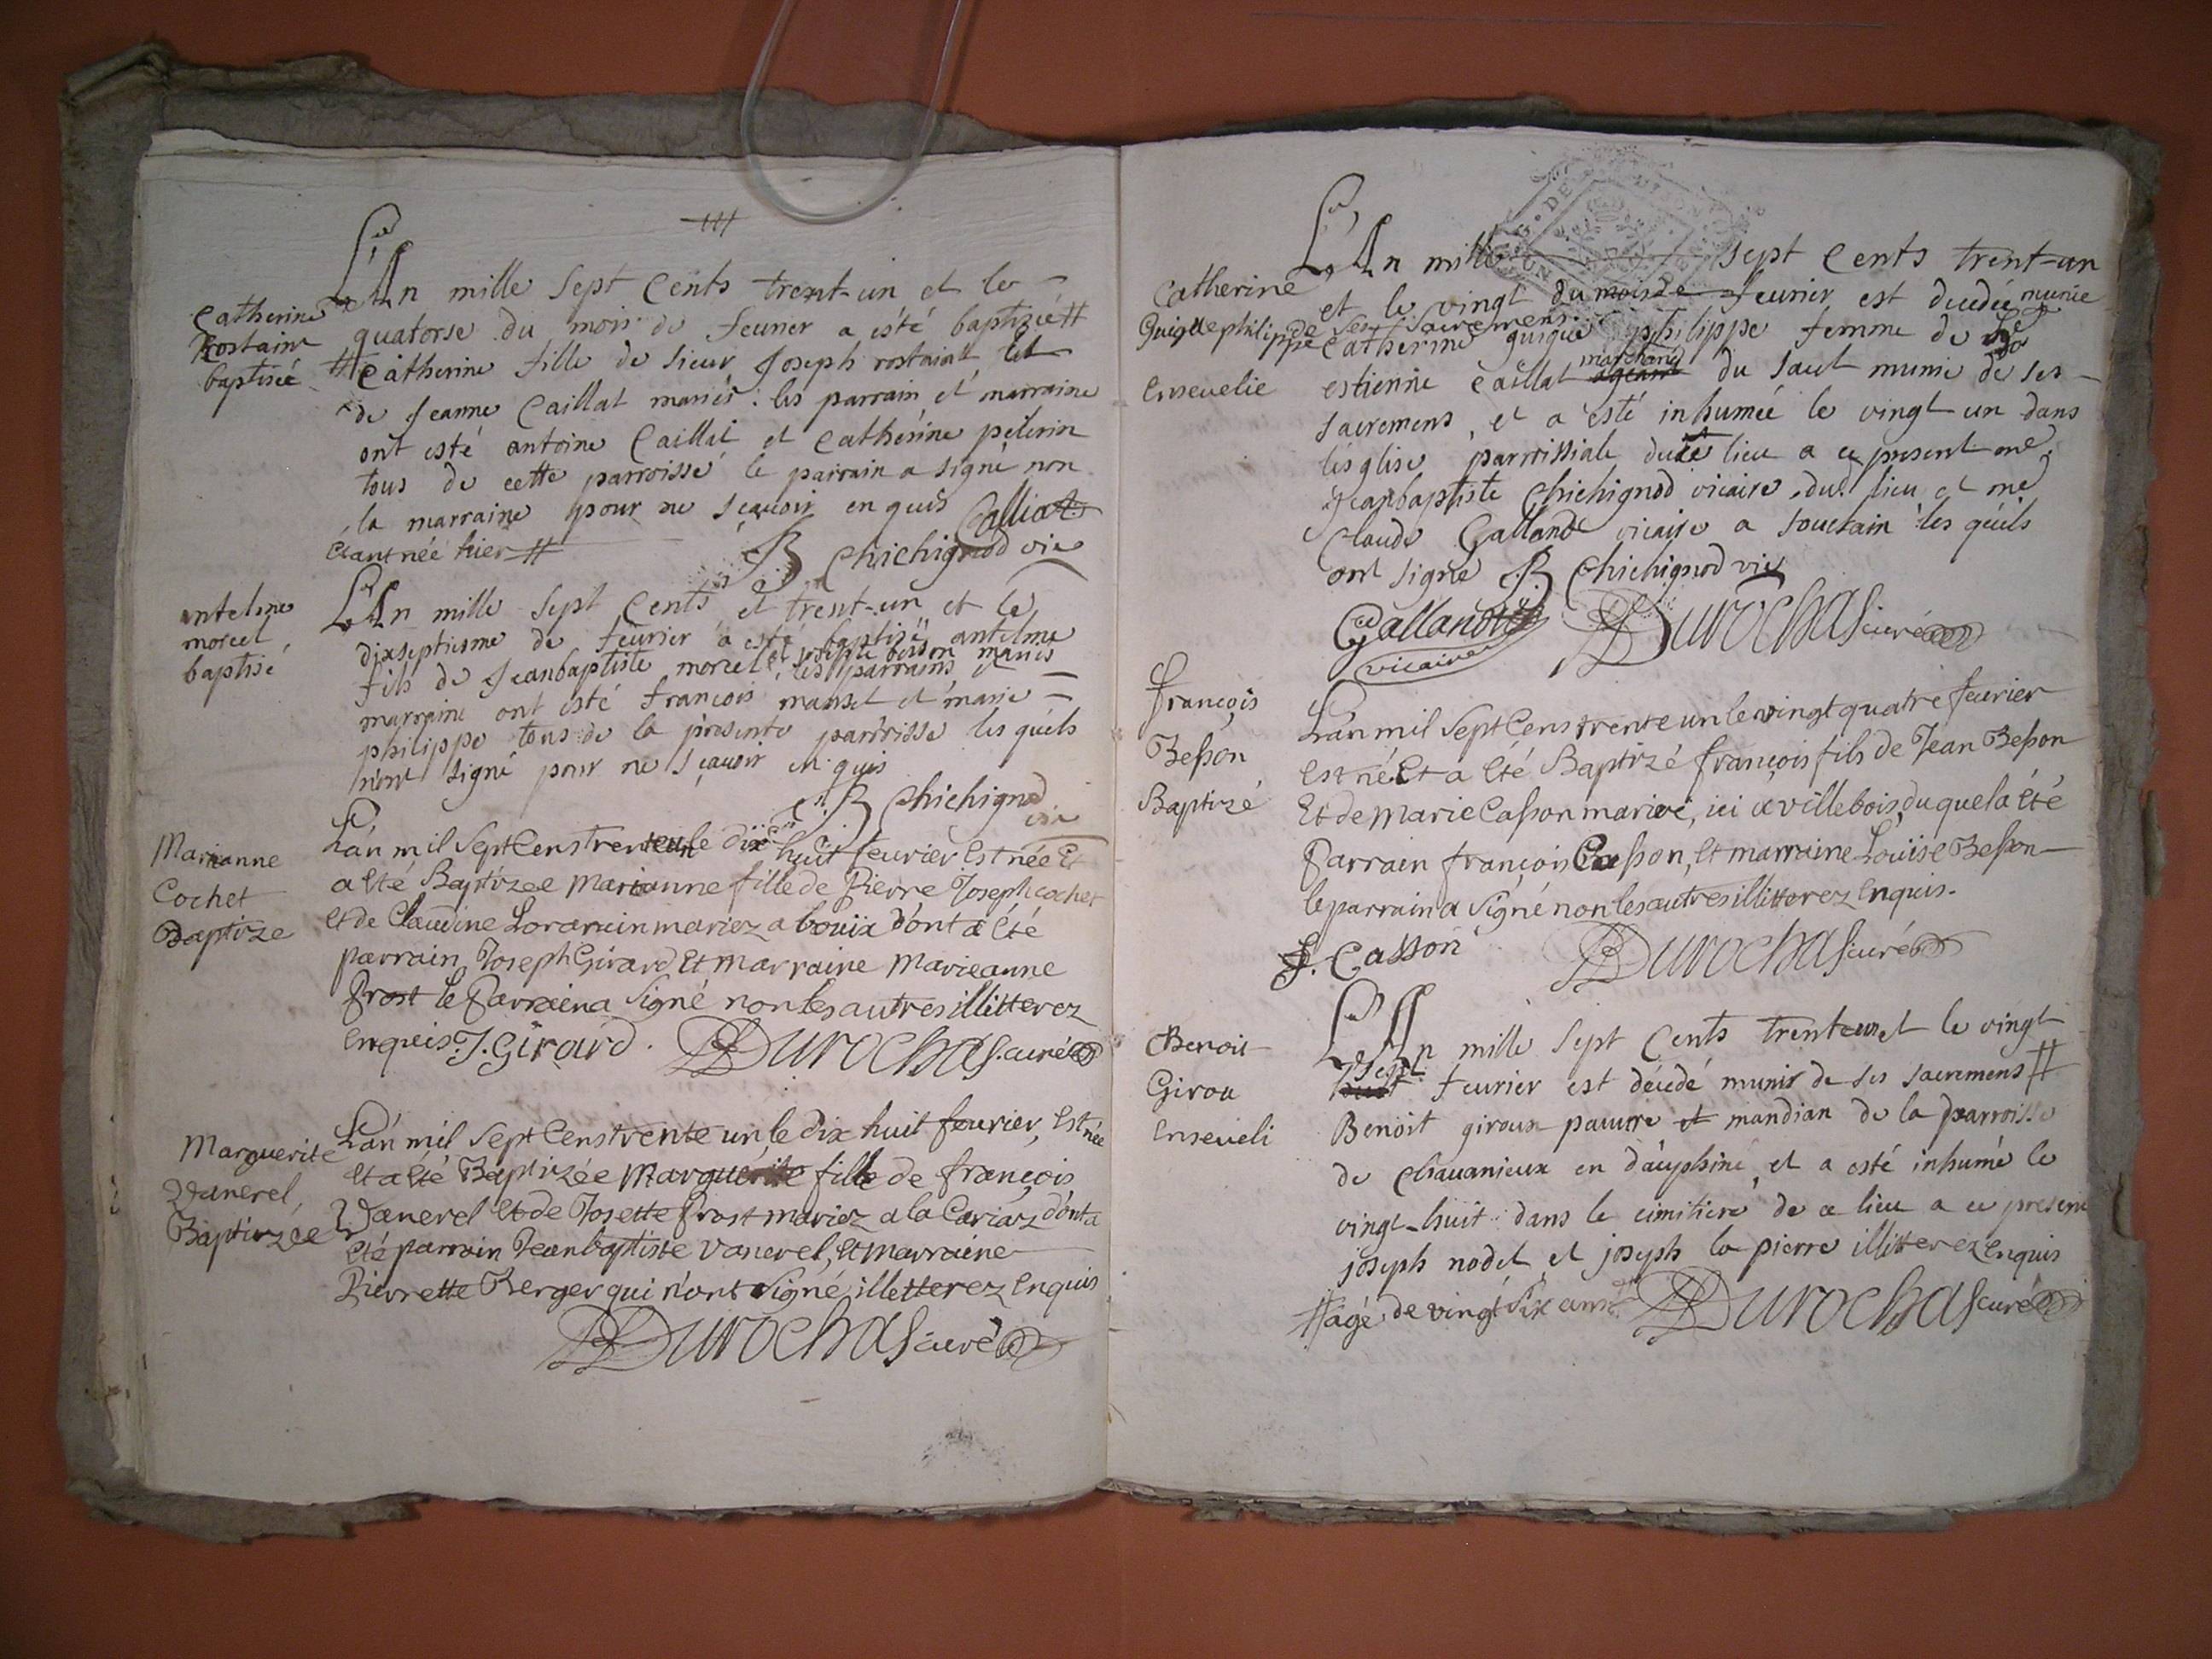 L'An mille sept cents trent-un et le
Catherine
Rostaint
baptisée
quatorse du mois de feurier a esté baptizée #
# Catherine fille de sieur Joseph rostaint et
de Jeanne Caillat mariés. les parrain et marraine
ont esté antoine Caillat et Catherine pelerin
tous de cette parroisse le parrain a signé non
la marraine pour ne sçauoir enquis Calliat
Etant née hier # JB Chichignod vic
antelme
morcel
baptisé
L'An mille sept cents et trent-un et le
dixseptiesme de feurier a esté baptizé antelme
fils de Jeanbaptiste morcel et besson mariés
les parrains,
marraine ont esté françois mansel et marie
philippe tous de la presente parroisse lesquels
n'ont signé pour ne sçauoir enquis
JB Chichignod
vic
Marianne
Cochet
Baptize
L'an mil Sept Cens trente un le dix huit feurier Est née Et
a Eté Baptizée Marianne fille de Pierre Joseph cochet
Et de Claudine mariez a bouix dont a Eté
parrain Joseph Girard Et marraine Marieanne
Prost le Parrain a Signé non les autres illitterez
Enquis. J. Girard. Durochas curé
Marguerite
Vanerel
Baptizée
L'an mil Sept Cens trente un le dix huit feurier, Est née
Et a Eté Baptizée Marguerite fille de françois
Vanerel Et de Josette Prost mariez a la Cariaz dont a
Eté parrain Jean baptiste Vanerel, Et marraine
Pierrette Berger qui n'ont Signé, illetterez Enquis
Durochas curé
L'An mille sept cents trent-un
Catherine
Guigue philippe
Enseuelie
et le vingt du mois de feurier est decedée munie
de ses sacremens
Catherine guigue philippe femme de
estienne Caillat marchand du saut munie de ses
sacremens, et a esté inhumée le vingt un dans
l'esglise parroissiale dudt lieu a ce present me
Jeanbaptiste Chichignod vicaire dud. lieu et me
Claude Galland vicaire a souclain lesquels
ont signé JB Chichignod vic
Galland
vicaire Durochas curé
françois
Besson
Baptizé
L'an mil Sept Cens trente un le vingt quatre feurier
Est né Et a Eté Baptizé françois fils de Jean Besson
Et de Marie Casson mariez, ici a villebois, duquel a Eté
Parrain françois Casson, Et marraine Loüise Besson
le parrain a Signé non les autres illitterez Enquis.
f. Casson Durochas curé
Benoit
Girou
Enseueli
L'An mille sept cents trente un et le vingt
sept feurier est décedé munis de ses sacremens #
Benoit giroux pauure et mandian de la parroisse
de chauanieux en dauphiné et a esté inhumé le
vingt-huit dans le cimitiere de ce lieu a ce present
joseph nodet et joseph la pierre illitterez Enquis
# agé de vingt six ans Durochas curé